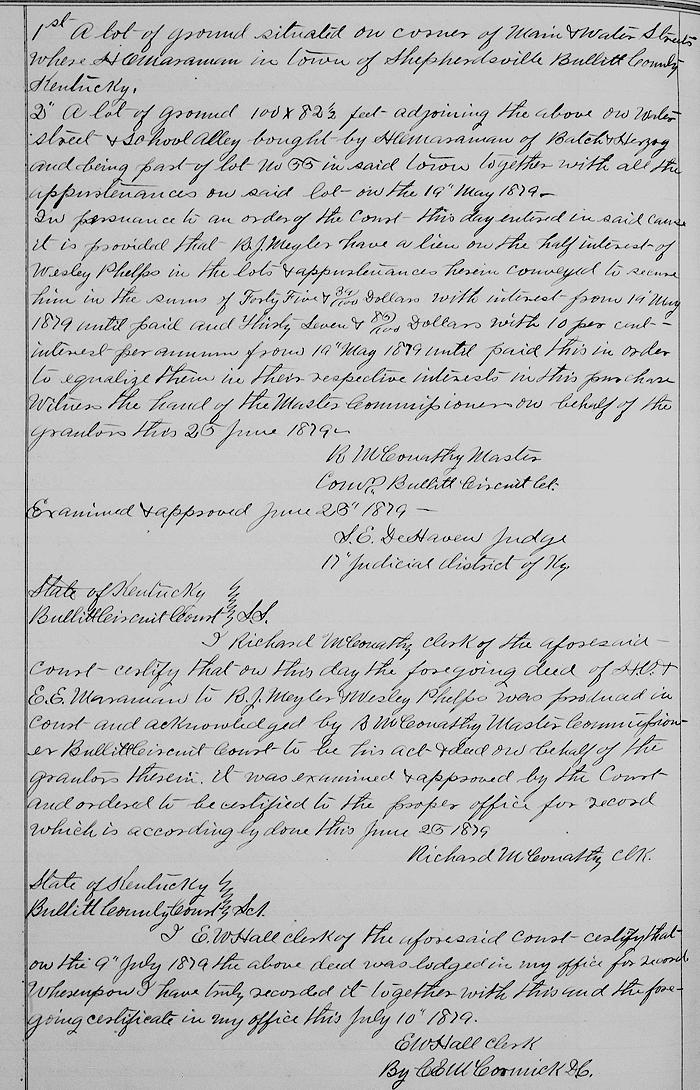 1st A lot of ground situated on corner of Main & Water Streets
where H Maraman in town of Shepherdsville Bullitt County
Kentucky.
2" A lot of ground 100 x 82½ feet adjoining the above on Water
street & School Alley bought by H Maraman of Batch & Herzog
and being part of lot No 55 in said town together with all the
appurtenances on said lot on the 19" May 1879-
In persuance to an order of the Court this day entered in said cause
it is provided that R.J. Meyler have a lien on the half interest of
Wesley Phelps in the lots & appurtenances herein conveyed to secure
him in the sums of Forty Five & 39/100 Dollars with interest from 19" May
1879 until paid and Thirty Seven & 85/100 Dollars with 10 per cent-
interest per annum from 19" May 1879 until paid this in order
to equalize them in their respective interests in this purchase
Witness the hand of the Master Commissioner on behalf of the
grantors this 25 June 1879-
R McConathy Master
Comr. Bullitt Circuit Ct.
Examined & approved June 25" 1879 -
S.E. DeHaven Judge
17" Judicial district of Ky
State of Kentucky
Bullitt Circuit Court SS.
I Richard McConathy clerk of the aforesaid
Court certify that on this day the foregoing deed of H. &
E.E. Maraman to R.J. Meyler & Wesley Phelps was produced in
Court and acknowledged by R McConathy Master Commission-
er Bullitt Circuit Court to be his act & deed on behalf of the
grantors therein. it was examined & approved by the Court
and ordered to be certified to the proper office for record
which is accordingly done this June 25 1879
Richard McConathy Clk.
State of Kentucky
Bullitt County Court Sct.
I E.W Hall clerk of the aforesaid court certify that
on the 9" July 1879 the above deed was lodged in my office for record
Whereupon I have truly recorded it together with this and the fore-
going certificate in my office this July 10" 1879.
E W Hall clerk
By C E McCormick D.C.